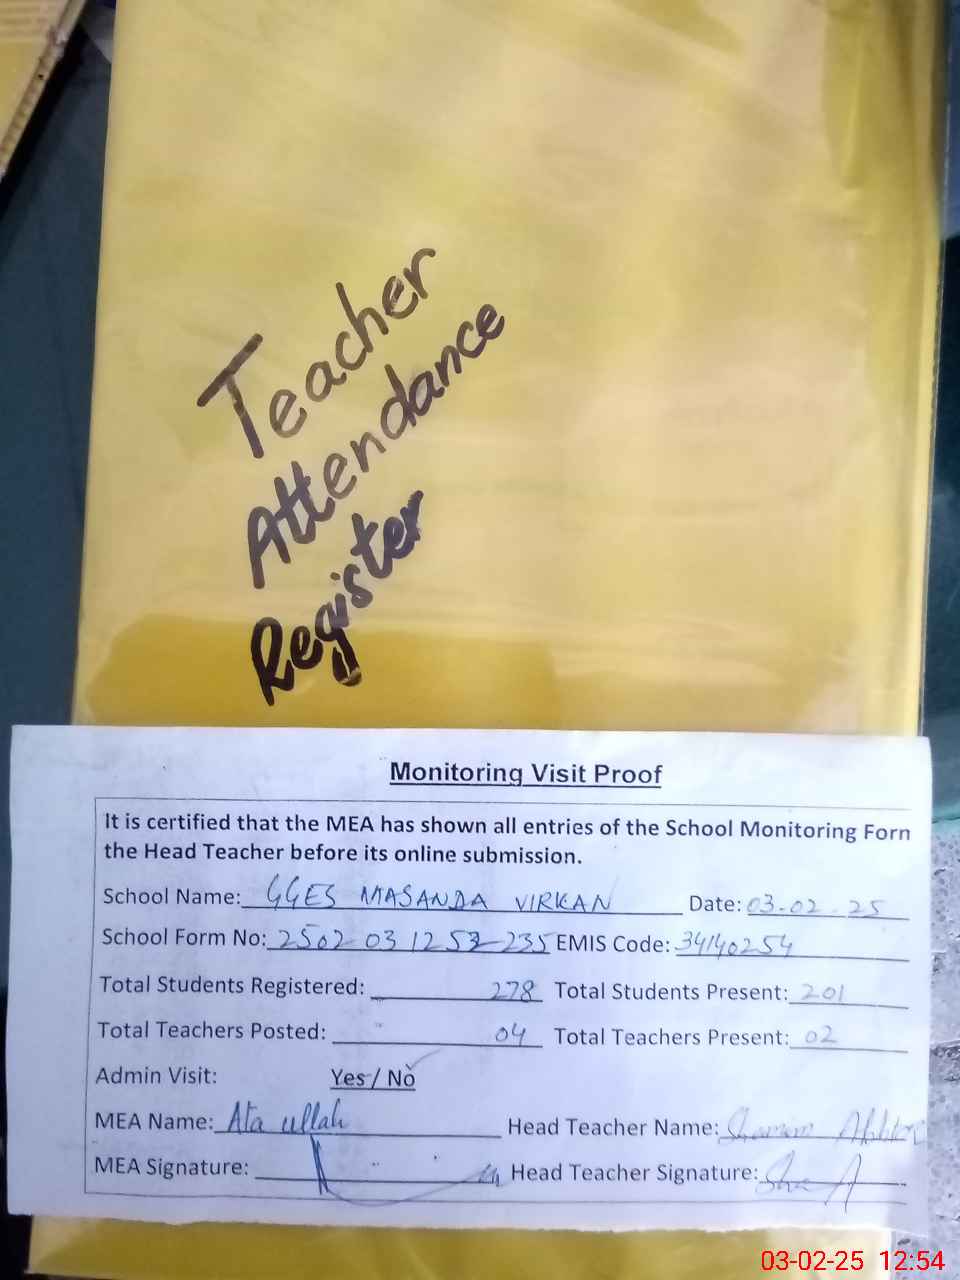 Teacher
Attendance
Register
Monitoring Visit Proof
It is certified that the MEA has shown all entries of the School Monitoring Forn
the Head Teacher before its online submission.
School Name: GGES MASANDA VIRKAN Date: 03-02-25
School Form No: 2502 03 1253-235 EMIS Code: 34140254
Total Students Registered: 278 Total Students Present: 201
Total Teachers Posted: 04 Total Teachers Present: 02
Admin Visit: Yes / No
MEA Name: Ata ullah Head Teacher Name: Shamim
MEA Signature: Head Teacher Signature:
03-02-25 12:54